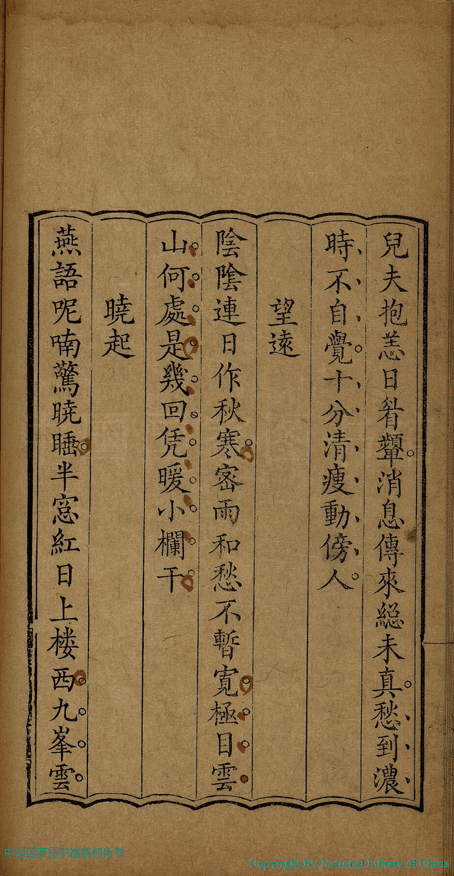 兒夫抱恙日眉顰消息傳來總未真愁到濃
時不自覺十分清瘦動傍人
望遠
陰陰連日作秋寒密雨和愁不暫寬極目雲
山何處是幾回凭暖小欄干
曉起
燕語呢喃驚曉睡半窓紅日上楼西九峯雲
Copyright By National Library of China